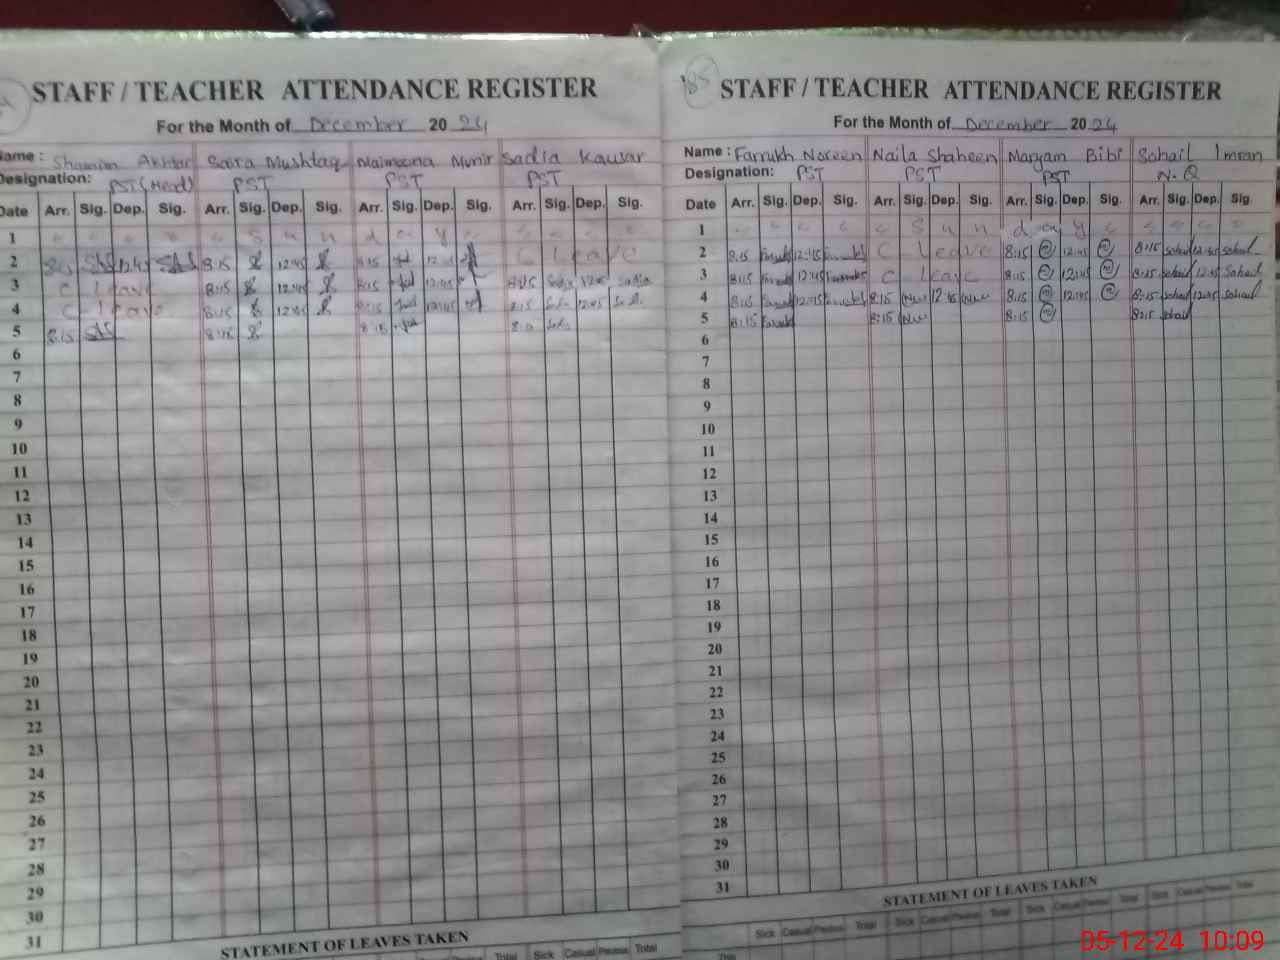 STAFF / TEACHER ATTENDANCE REGISTER
For the Month of December 2024
Name : Shamim Akhtar Saira Mushtaq Maimoona Munir Sadia Kawsar
Designation: PST (Head) PST PST PST
Date Arr. Sig. Dep. Sig. Arr. Sig. Dep. Sig. Arr. Sig. Dep. Sig. Arr. Sig. Dep. Sig.
1 S u n d a y
2 8:15 12:45 8:15 12:45 8:15 12:45 C leave
3 C leave 8:15 12:45 8:15 12:45 8:15 Sadia 12:45 Sadia
4 C leave 8:15 12:45 8:15 12:45 8:15 12:45
5 8:15 8:15 8:15
6
7
8
9
10
11
12
13
14
15
16
17
18
19
20
21
22
23
24
25
26
27
28
29
30
31
STATEMENT OF LEAVES TAKEN
Sick Casual Previous Total
185
STAFF / TEACHER ATTENDANCE REGISTER
For the Month of December 2024
Name : Farrukh Noreen Naila Shaheen Maryam Bibi Sohail Imran
Designation: PST PST PST N-Q
Date Arr. Sig. Dep. Sig. Arr. Sig. Dep. Sig. Arr. Sig. Dep. Sig. Arr. Sig. Dep. Sig.
1 S u n d a y
2 8:15 12:45 C leave 8:15 12:45 8:15 Sohail 12:45 Sohail
3 8:15 12:45 C leave 8:15 12:45 8:15 Sohail 12:45 Sohail
4 8:15 12:45 8:15 12:45 8:15 12:45 8:15 Sohail 12:45 Sohail
5 8:15 8:15 8:15 8:15 Sohail
6
7
8
9
10
11
12
13
14
15
16
17
18
19
20
21
22
23
24
25
26
27
28
29
30
31
STATEMENT OF LEAVES TAKEN
Sick Casual Previous Total Sick Casual Previous Total Sick Casual Previous Total Sick Casual Previous Total
This
05-12-24 10:09